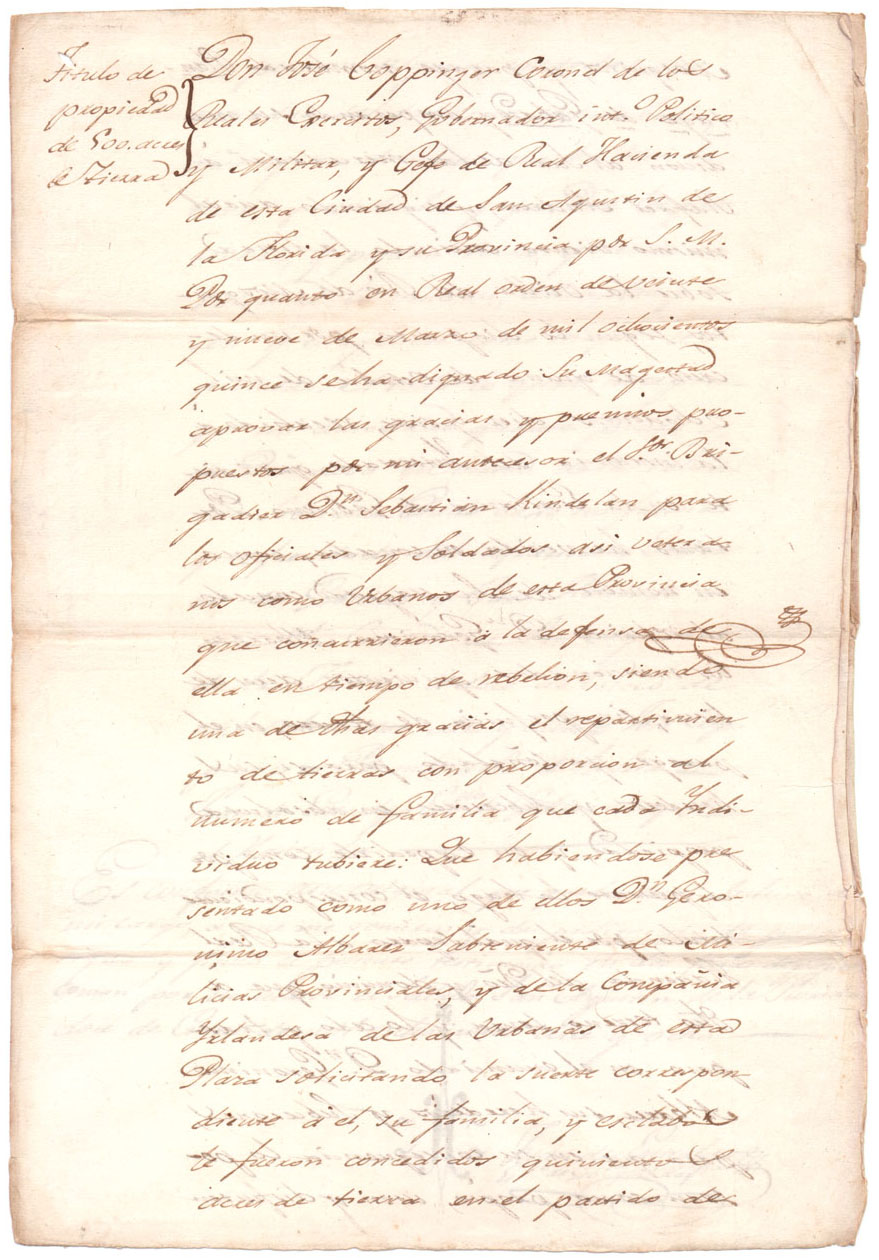 Titulo de
propiedad
de 500. acres
de tierra
Don José Coppinger Coronel de los
Reales Exercitos, Gobernador int.º Politico
y Militar, y Gefe de Real Hacienda
de esta Ciudad de San Agustin de
la Florida y su Provincia por S. M.
Por quanto en Real orden de veinte
y nueve de Marzo de mil ochocientos
quince se ha dignado Su Magestad
aprovar las gracias y premios pro-
puestos por mi antecesor el S.ºr Bri-
gadier D.n Sebastián Kindelan para
los oficiales y Soldados asi vetera
nos como Urbanos de esta Provincia
que concurrieron à la defensa de
ella en tiempo de rebelion, siendo
una de dhas gracias el repartimien
to de tierras con proporcion al
numero de familia que cada Indi-
viduo tubiere: Que habiendose pre
sentado como uno de ellos D.n Gero-
nimo Albarez Subteniente de Mi-
licias Provinciales, y de la Compañia
Yrlandesa de las Urbanas de esta
Plaza solicitando la suerte correspon-
diente à el, su familia, y esclabos
le fueron concedidos quinientos
acres de tierra en el partido de